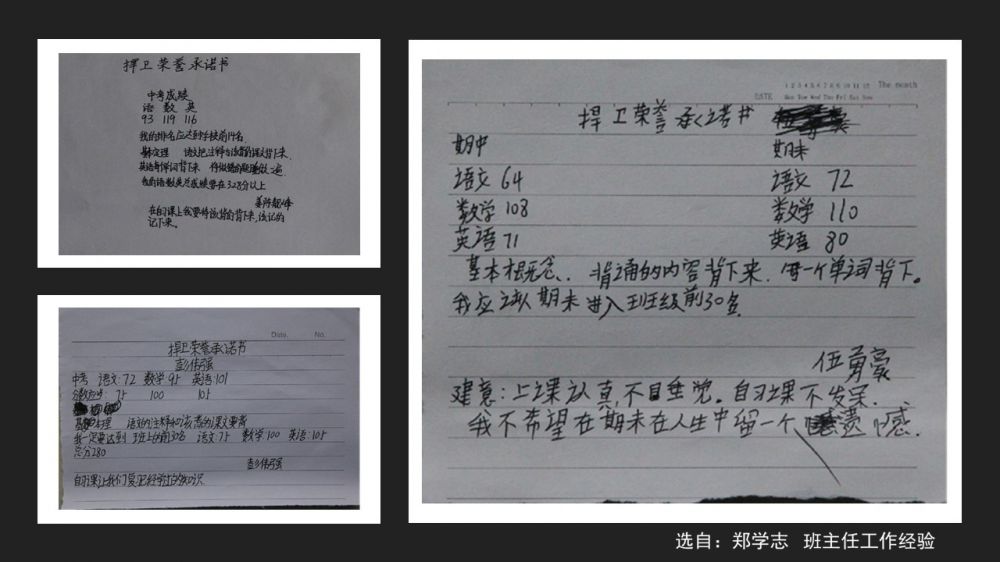 捍卫荣誉承诺书
中考成绩
语 数 英
93 119 116
我的排名应达到年级前14名
基本定理 语文把注释与该背的课文背下来
英语每个单词背下来 将做错的题重做一遍
我的语数英总成绩要在328分以上
在自习课上我要将该背的背下来,该记的
记下来。
捍卫荣誉承诺书
彭伟强
中考 语文:72 数学95 英语:101
75 100 105
语文的注释和该背的课文要背
我一定要达到 班上的前30名 语文:75 数学100 英语:105
总分280
彭伟强
自习课让我们复习已经学过的知识
DATE 1 2 3 4 5 6 7 8 9 10 11 12 The month
Mon Tue Wed Thu Fri Sat Sun
捍卫荣誉承诺书
期中 期末
语文 64 语文 72
数学 108 数学 110
英语 71 英语 80
基本概念、背诵的内容背下来,每一个单词背下。
我应该从期末进入班级前30名
伍勇豪
建意:上课认真不目垂觉。自习课不发呆.
我不希望在期末在人生中留一个遗憾.
Date. No.
选自:郑学志 班主任工作经验